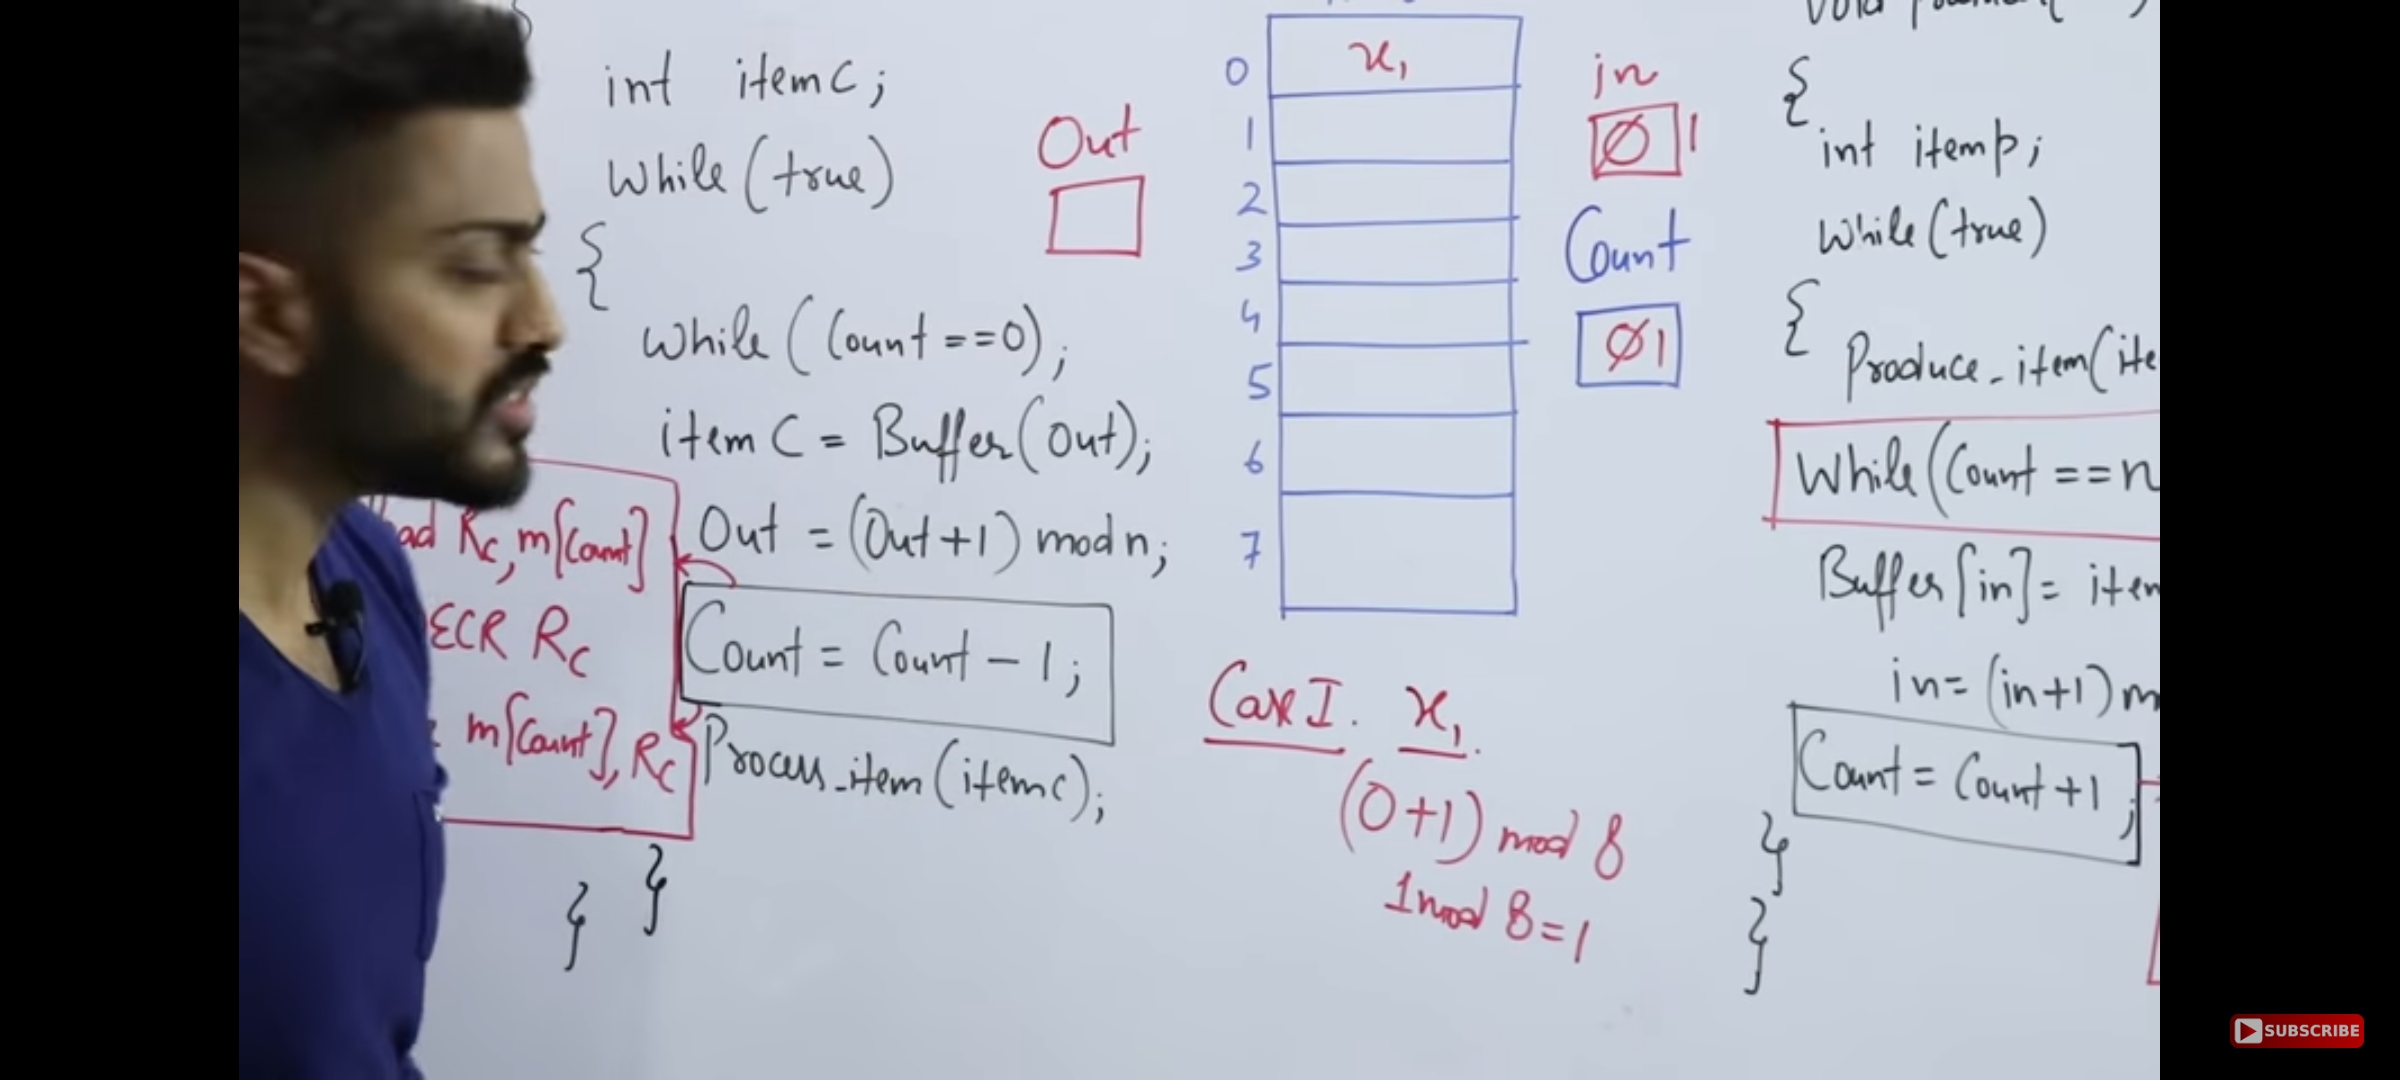 int itemC;
While(true)
{
While(Count==0);
itemC = Buffer(Out);
Out = (Out+1) mod n;
Count = Count - 1;
Process_item(itemc);
}
}
Rc, m[Count]
Rc
m[Count], Rc
Out
0 x₁
1
2
3
4
5
6
7
in
0 1
Count
0 1
Case I. x₁.
(0+1) mod 8
1 mod 8 = 1
{
int itemp;
While(true)
{
Produce_item(
While(Count==n
Buffer[in]=
in=(in+1)
Count = Count+1;
}
}
SUBSCRIBE